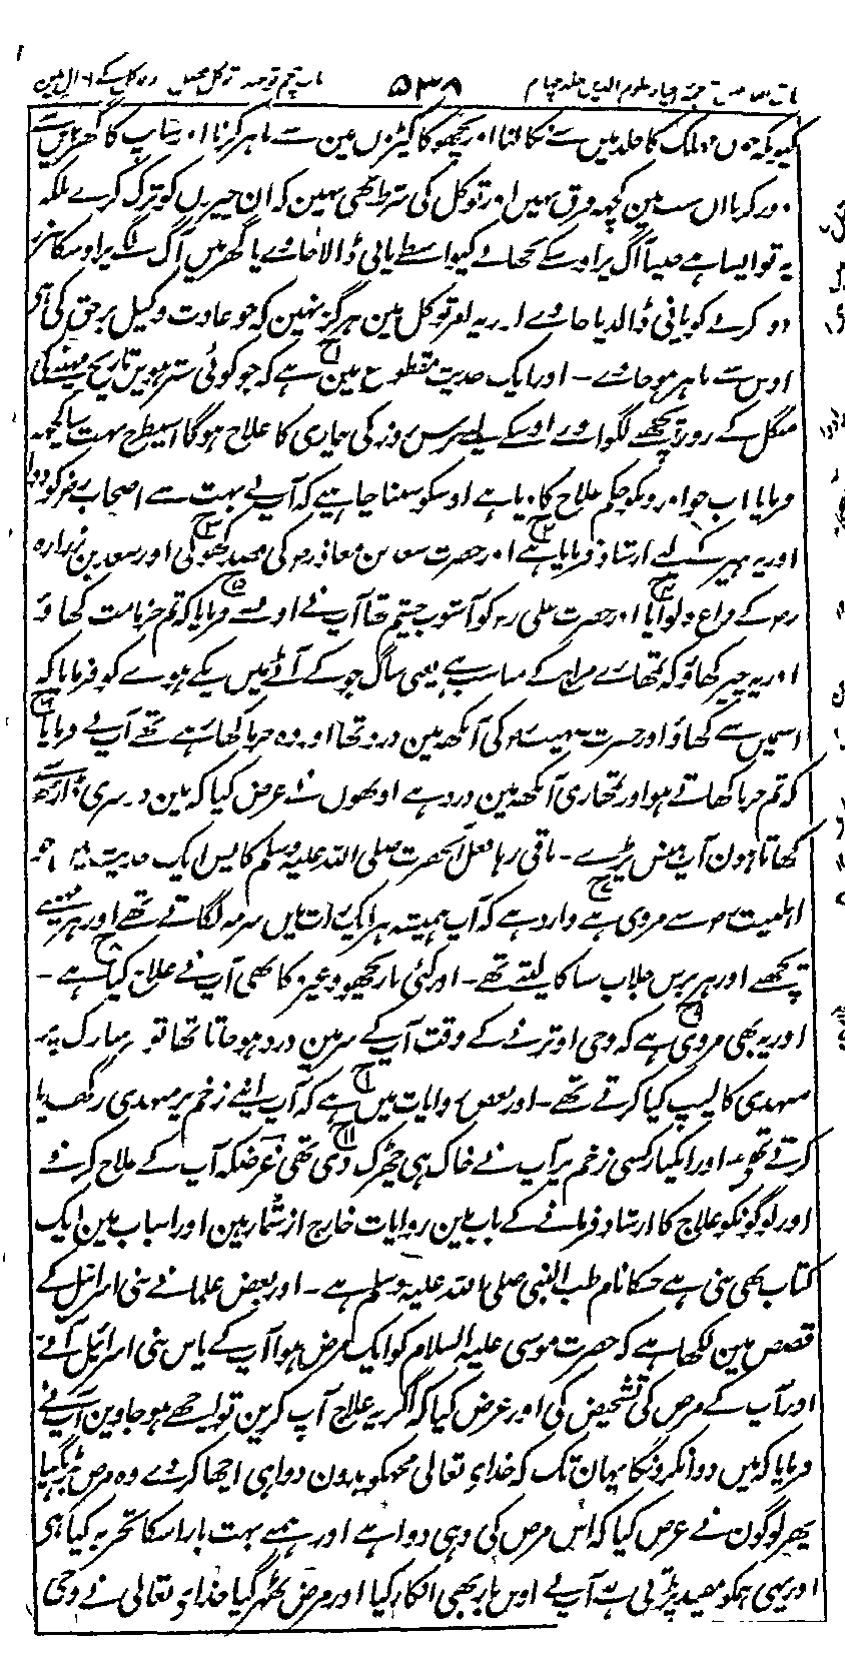 ۵۳۸
کیونکہ خون مہلک کا جلد میں سے نکالنا اور بچھو کا کپڑوں مین سے باہر کرنا اور سانپ کا گھر میں سے
دور کرنا ان سب مین کچھہ فرق نہیں اور توکل کی شرط بھی نہین کہ ان چیزوں کو ترک کرے بلکہ
یہ تو ایسا ہے جیسا آگ پر اوسکے بجھانے کیواسطے پانی ڈالا جاوے یا گھر میں آگ لگے پر اوسکا ضرر
دور کرنے کو پانی ڈالدیا جاوے اور یہ امر توکل مین ہرگز نہین کہ جو عادت وکیل برحق کی ہی
اوس سے باہر ہو جاوے - اور ایک حدیث مقطوع مین ہے کہ جو کوئی سترہویں تاریخ مہینے کی
منگل کے روز پچھنے لگواوے اوسکے لیے برس روز کی بیماری کا علاج ہوگا اسیطرح بہت سا کچھہ
فرمایا اب جو اورونکو حکم علاج کا دیا ہے اوسکو سننا چاہیے کہ آپ نے بہت سے اصحاب رض کو دوا
اور پرہیز کے لیے ارشاد فرمایا ہے اور حضرت سعد بن معاذ رض کی فصد کھولی اور سعد بن زرارہ
رض کے داغ دلوایا اور حضرت علی رض کو آشوب چشم تھا آپ نے اونسے فرمایا کہ تم خرما مت کھاؤ
اور یہ چیز کھاؤ کہ تمھارے مزاج کے مناسب ہے یعنی ساگ جو کے آٹے میں پکے ہوے کو فرمایا کہ
اسمیں سے کھاؤ اور حضرت صہیب رض کی آنکھ مین درد تھا اور وہ خرما کھا رہے تھے آپ نے فرمایا
کہ تم خرما کھاتے ہو اور تمھاری آنکھ مین درد ہے اونھوں نے عرض کیا کہ مین دوسری ڈاڑھ سے
کھاتا ہون آپ ہنس پڑے - باقی رہا فعل آنحضرت صلی اللہ علیہ وسلم کا پس ایک حدیث میں جو
اہلبیت رض سے مروی ہے وارد ہے کہ آپ ہمیشہ ہر ایک رات میں سرمہ لگاتے تھے اور ہر مہینے
پچھنے اور ہر برس جلاب سنا کا لیتے تھے - اور کئی بار بچھو وغیرہ کا بھی آپ نے علاج کیا ہے -
اور یہ بھی مروی ہے کہ وحی اوترنے کے وقت آپ کے سر مین درد ہو جاتا تھا تو سر مبارک پر
مہندی کا لیپ کیا کرتے تھے - اور بعض روایات میں ہے کہ آپ اپنے زخم پر مہندی رکھ لیا
کرتے تھے اور ایکبار کسی زخم پر آپ نے خاک ہی چھڑک دی تھی غرضکہ آپ کے علاج کرنے
اور لوگونکو علاج کا ارشاد فرمانے کے باب مین روایات خارج از شمار ہین اور اسباب مین ایک
کتاب بھی بنی ہے جسکا نام طب النبی صلی اللہ علیہ وسلم ہے - اور بعض علما نے بنی اسرائیل کے
قصص مین لکھا ہے کہ حضرت موسی علیہ السلام کو ایک مرض ہوا آپ کے پاس بنی اسرائیل آئے
اور آپ کے مرض کی تشخیص کی اور عرض کیا کہ اگر یہ علاج آپ کرین تو اچھے ہو جاوین آپ نے
فرمایا کہ میں دوا نکرونگا یہان تک کہ خدای تعالی مجھکو بدون دوا ہی اچھا کر دے وہ مرض بڑھ گیا
پھر لوگون نے عرض کیا کہ اس مرض کی وہی دوا ہے اور ہمنے بہت بار اسکا تجربہ کیا ہی
اور یہی ہمکو مفید پڑتی ہے آپ نے اوس بار بھی انکار کیا اور مرض ٹھہر گیا خدای تعالی نے وحی